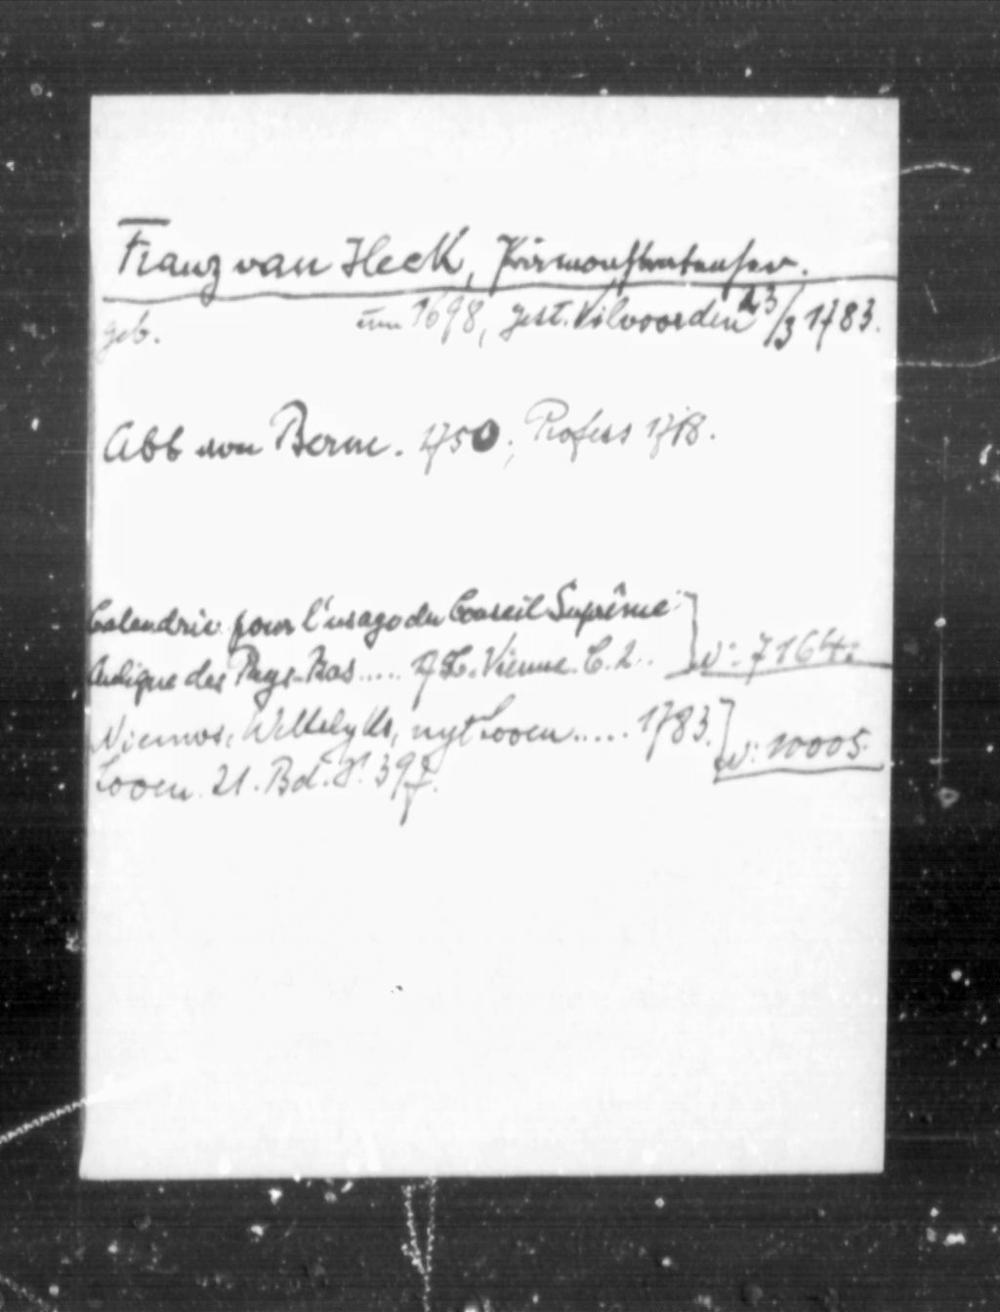 Franz van Heck, Prämonstratenser.
geb. um 1698, gest. Vilvoorden 23/3 1783.
Abb von Berne. 1750; Profess 1718.
Calendrie pour l'usage du Conseil Suprême
Aulique des Pays-Bas..... Vienne. C. 2.. ] v: 7164.
Nieuws, Uyt Loven..... 1783. ] v: 10005.
Loven. 21. Bd. S. 397.